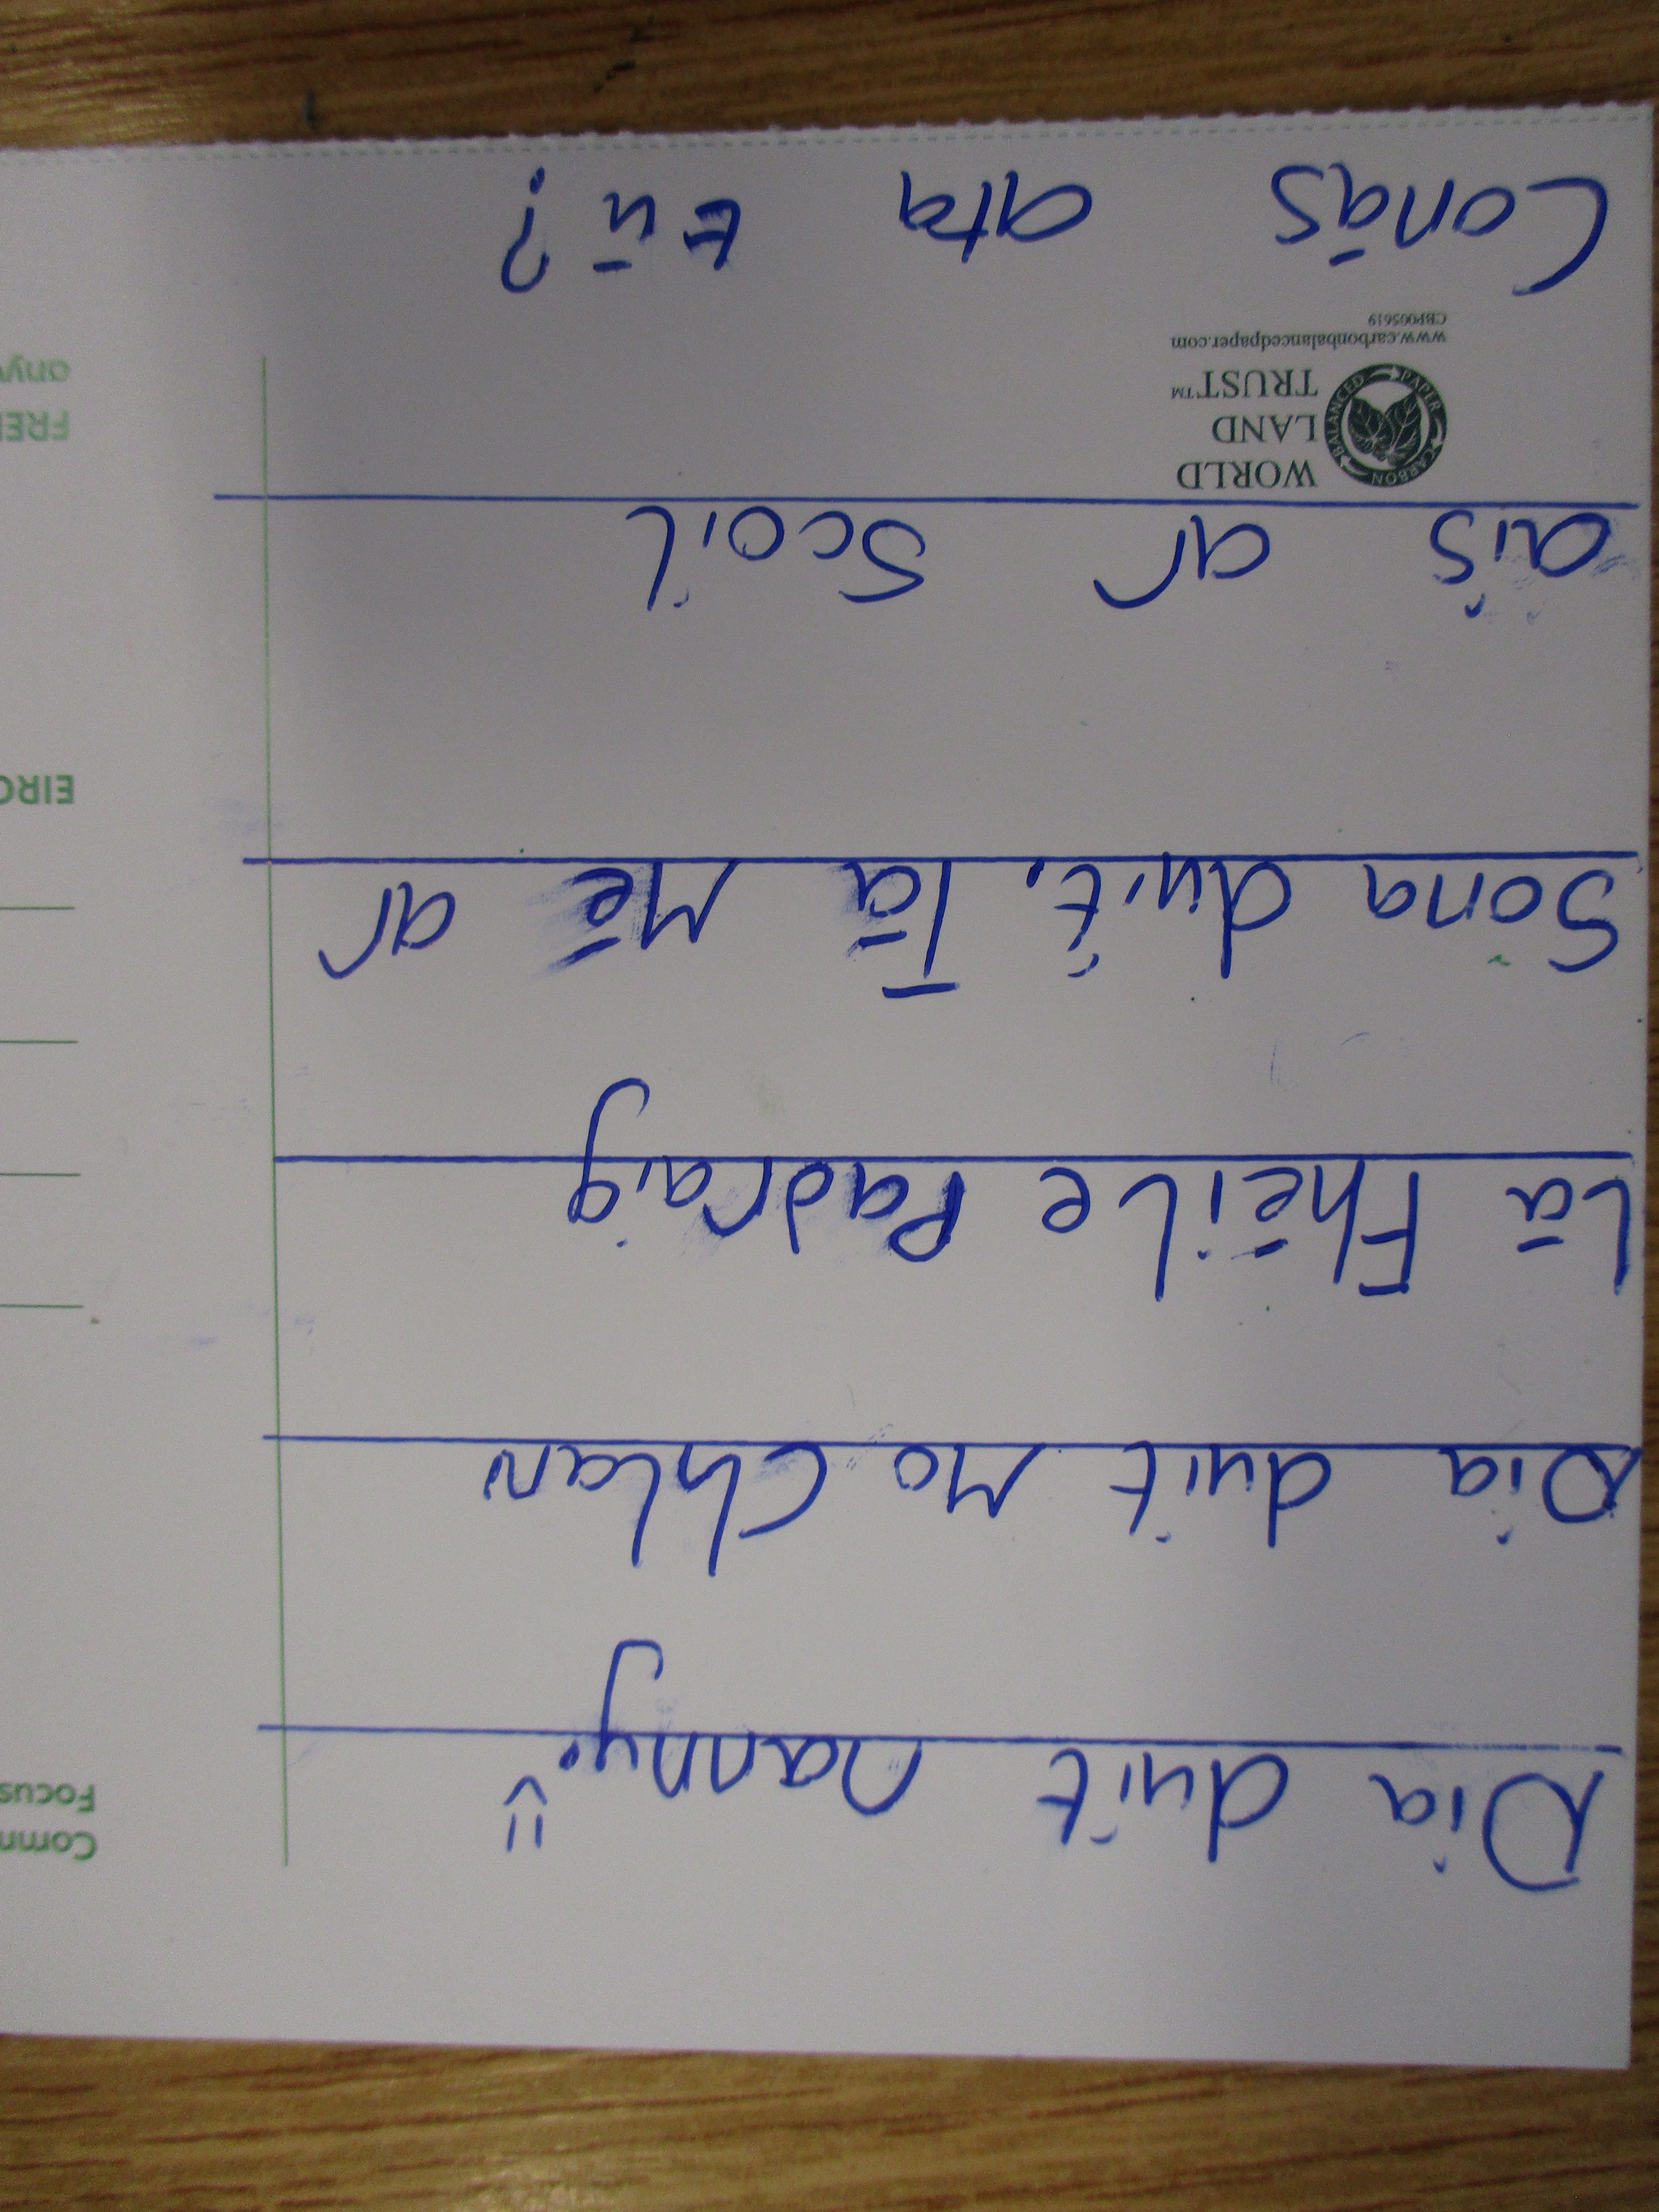 Dia duit nanny.
Dia duit Mo Chlann
Lá Fhéile Padraig
Sona duit. Tá Mé ar
ais ar Scoil
WORLD
LAND
TRUST™
CARBON BALANCED PAPER
www.carbonbalancedpaper.com
CBP005619
Conás ata tú?
Comm
Focus
EIRC
FREE
anyw